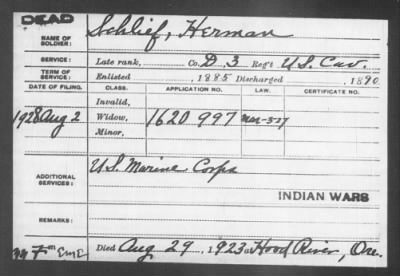 DEAD
NAME OF SOLDIER: Schlief, Herman
SERVICE: Late rank, Co. D. 3 Reg't U.S. Cav.
TERM OF SERVICE: Enlisted , 1885 Discharged , 1890
DATE OF FILING. CLASS. APPLICATION NO. LAW. CERTIFICATE NO.
Invalid,
1928 Aug 2 Widow, 1620 997 Mar-3-27
Minor,
ADDITIONAL SERVICES: U.S. Marine Corps
INDIAN WARS
REMARKS:
Died Aug 29, 1923 at Hood River, Ore.